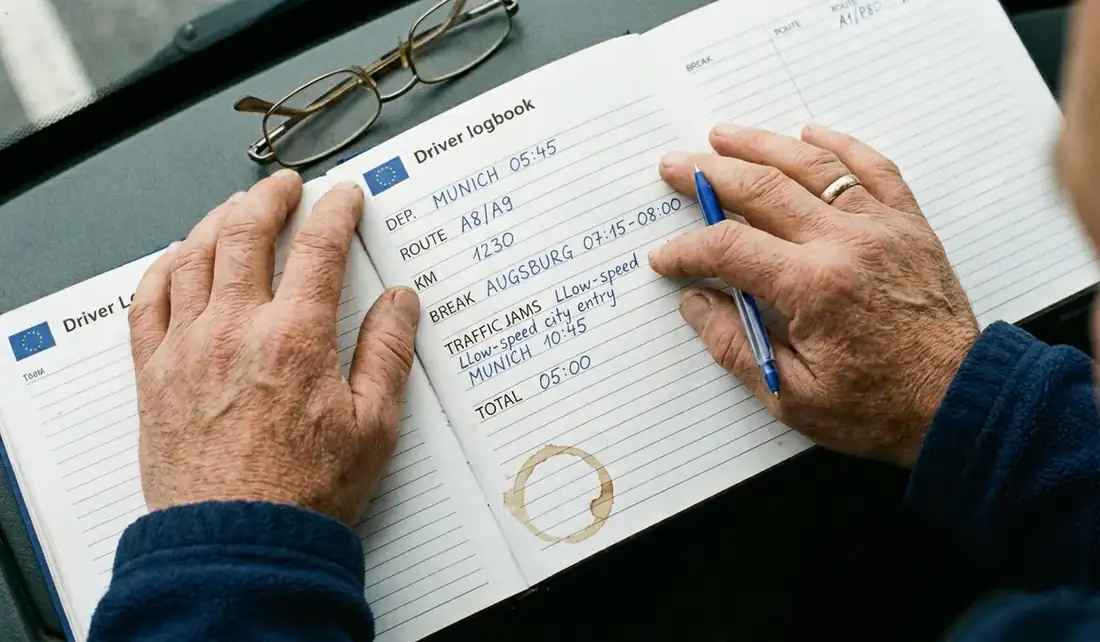 Driver logbook
DEP. MUNICH 05:45
ROUTE A8/A9
KM 1230
BREAK AUGSBURG 07:15-08:00
TRAFFIC JAMS Llow-speed
Llow-speed city entry
MUNICH 10:45
TOTAL 05:00
Driver
BREAK
ROUTE
A1/P80